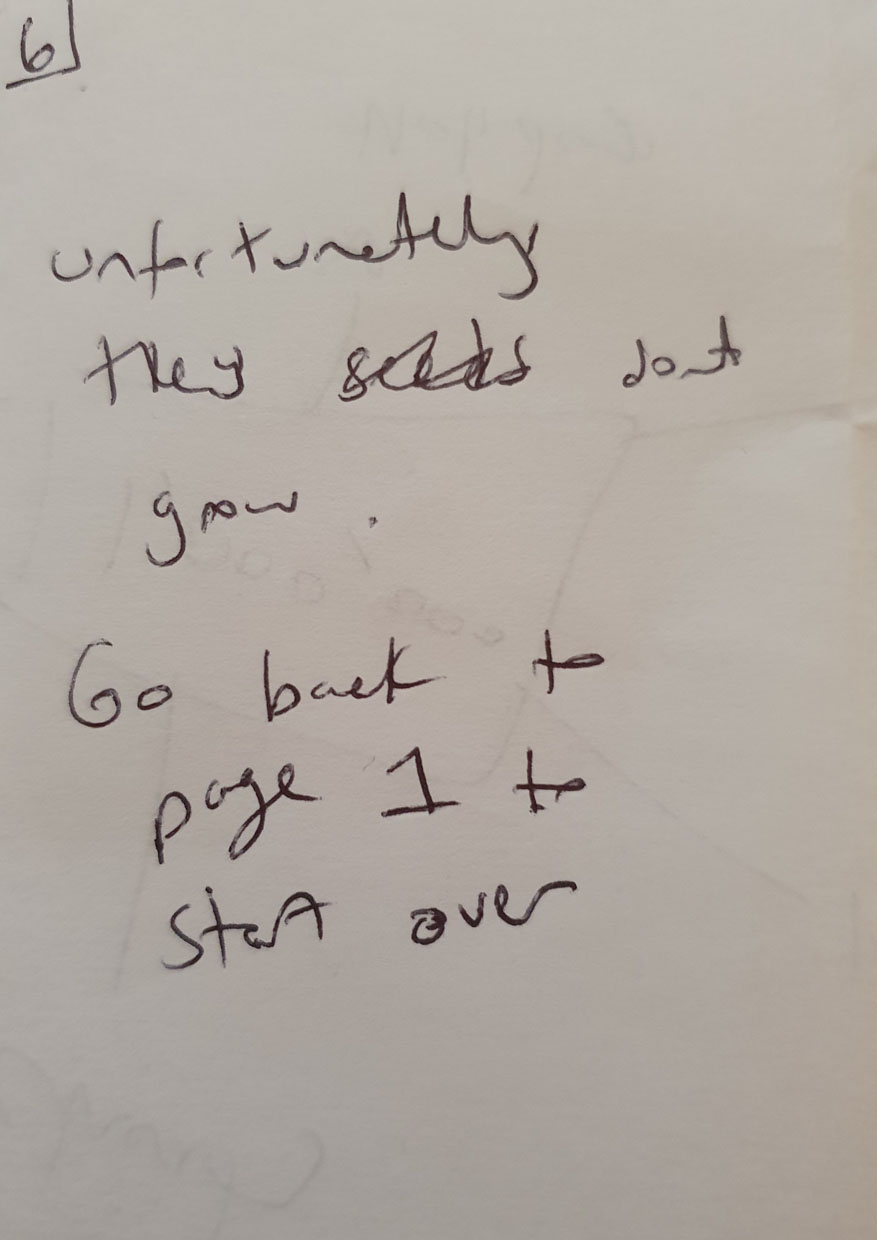 6
unfortunately
they seeds dont
grow.
Go back to
page 1 to
start over